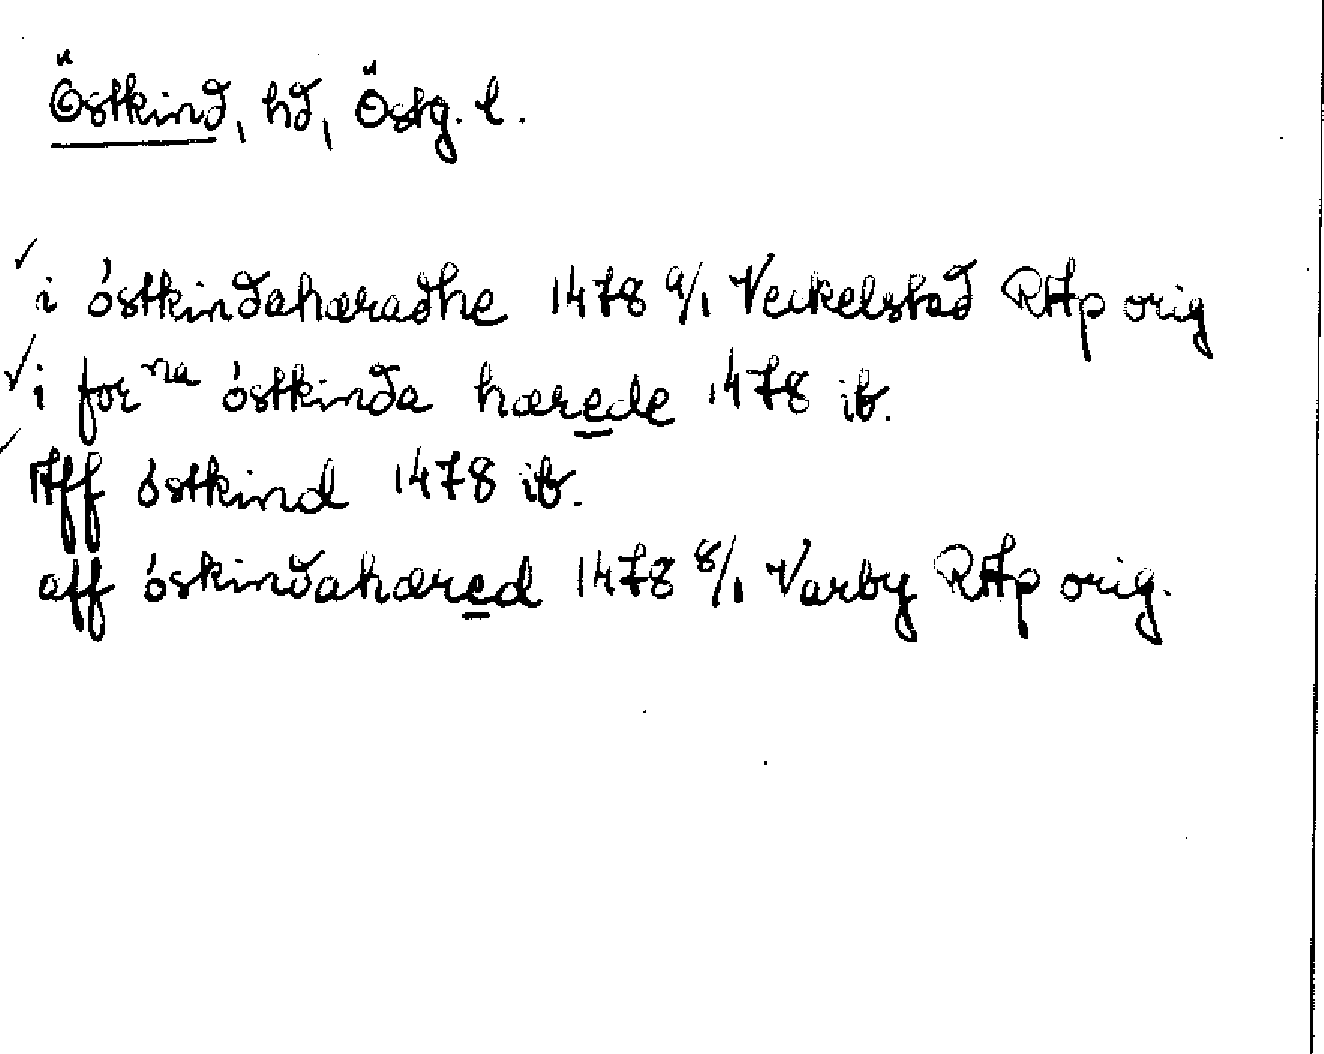 Östkind, hd, Östg. l.
i óstkindahæradhe 1478 9/1 Veckelstad RAp orig
i for na óstkinda hærede 1478 ib.
Aff óstkind 1478 ib.
aff óskindahæred 1478 8/1 Varby RAp orig.